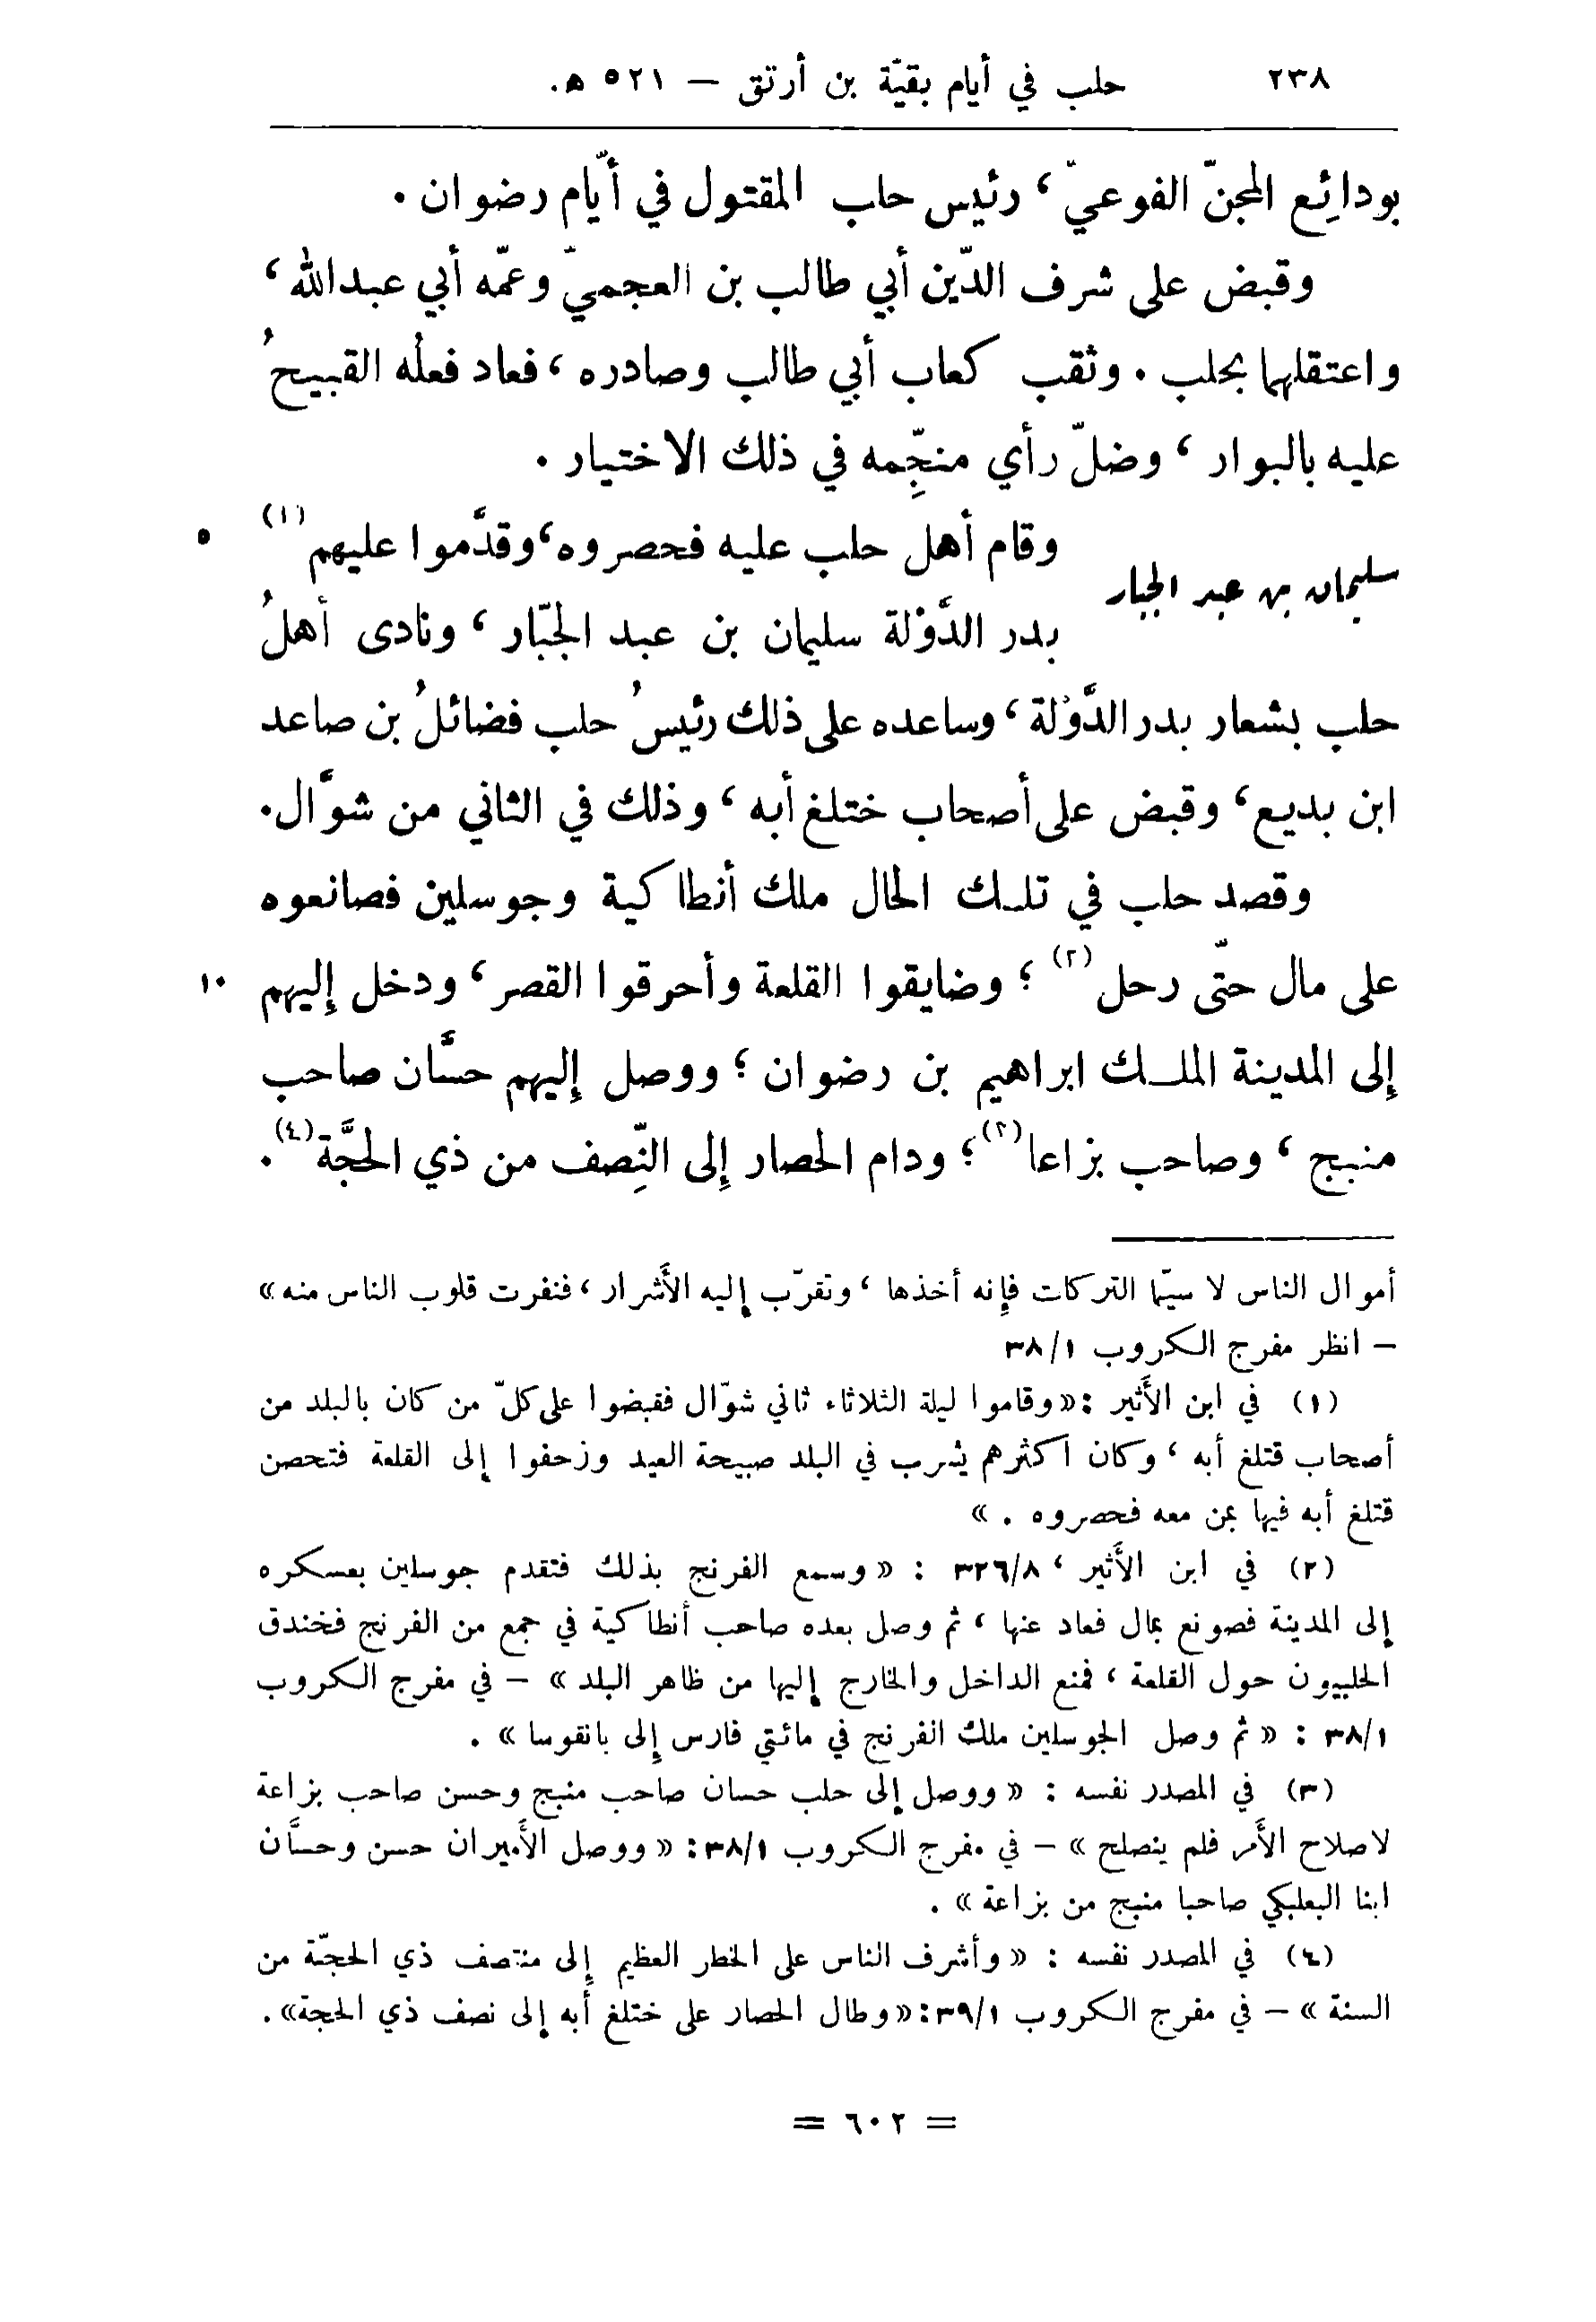 ٢٣٨ حلب في أيام بقيّة بن أرتق – ٥٢١ ه.
بودائِع المجنّ الفوعيّ ، رئيس حلب المقتول في أيّام رضوان .
وقبض على شرف الدّين أبي طالب بن العجميّ وعمّه أبي عبدالله ،
واعتقلهما بحلب . وثقب كعاب أبي طالب وصادره ، فعاد فعلُه القبيحُ
عليه بالبوار ، وضلّ رأي منجِّمه في ذلك الاختيار .
سليمان بن عبد الجبار
وقام أهل حلب عليه فحصروه، وقدَّموا عليهم (١) ٥
بدر الدَّوْلة سليمان بن عبد الجبّار ، ونادى أهلُ
حلب بشعار بدر الدَّوْلة ، وساعده على ذلك رئيسُ حلب فضائلُ بن صاعد
ابن بديع ، وقبض على أصحاب ختلغ أبه ، وذلك في الثاني من شوَّال.
وقصد حلب في تلك الحال ملك أنطاكية وجوسلين فصانعوه
على مال حتّى رحل (٢) ؛ وضايقوا القلعة وأحرقوا القصر ، ودخل إليهم ١٠
إلى المدينة الملك ابراهيم بن رضوان ؛ ووصل إليهم حسَّان صاحب
منبج ، وصاحب بزاعا (٣) ؛ ودام الحصار إلى النِّصف من ذي الحجَّة (٤) .
أموال الناس لا سيّما التركات فإنه أخذها ، وتقرّب إليه الأشرار ، فنفرت قلوب الناس منه »
– انظر مفرج الكروب ٣٨/١
(١) في ابن الأثير : « وقاموا ليلة الثلاثاء ثاني شوّال فقبضوا على كلّ من كان بالبلد من
أصحاب قتلغ أبه ، وكان اكثرهم يشرب في البلد صبيحة العيد وزحفوا إلى القلعة فتحصن
قتلغ أبه فيها بمن معه فحصروه . »
(٢) في ابن الأثير ، ٣٢٦/٨ : « وسمع الفرنج بذلك فتقدم جوسلين بعسكره
إلى المدينة فصونع بمال فعاد عنها ، ثم وصل بعده صاحب أنطاكية في جمع من الفرنج فخندق
الحلبيون حول القلعة ، فمنع الداخل والخارج إليها من ظاهر البلد » – في مفرج الكروب
٣٨/١ : « ثم وصل الجوسلين ملك الفرنج في مائتي فارس إلى بانقوسا » .
(٣) في المصدر نفسه : « ووصل إلى حلب حسان صاحب منبج وحسن صاحب بزاعة
لاصلاح الأمر فلم ينصلح » – في مفرج الكروب ٣٨/١: « ووصل الأميران حسن وحسَّان
ابنا البعلبكي صاحبا منبج من بزاعة » .
(٤) في المصدر نفسه : « وأشرف الناس على الخطر العظيم إلى منتصف ذي الحجّة من
السنة » – في مفرج الكروب ٣٩/١: « وطال الحصار على ختلغ أبه إلى نصف ذي الحجة» .
= ٦٠٢ =